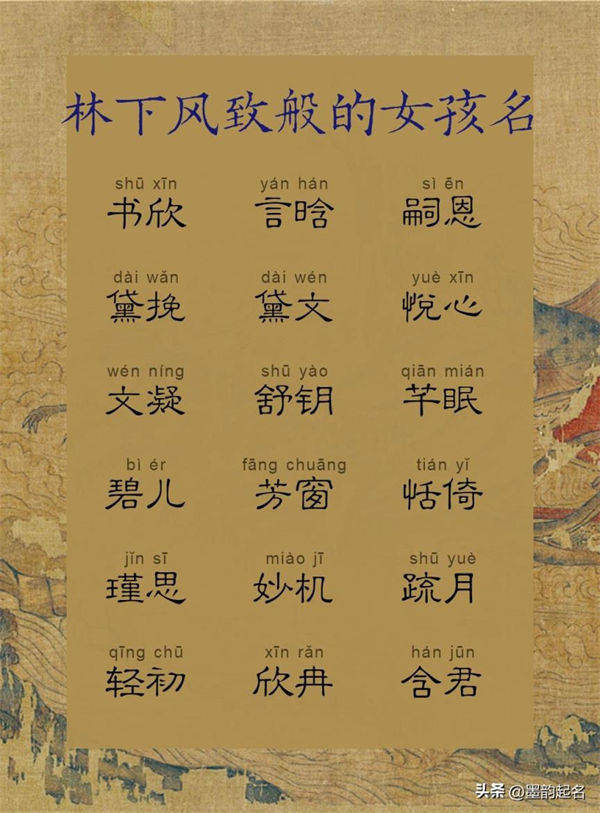 林下风致般的女孩名
shū xīn yán hán sì ēn
书欣 言晗 嗣恩
dài wǎn dài wén yuè xīn
黛挽 黛文 悦心
wén níng shū yào qiān mián
文凝 舒钥 芊眠
bì ér fāng chuāng tián yǐ
碧儿 芳窗 恬倚
jǐn sī miào jī shū yuè
瑾思 妙机 疏月
qīng chū xīn rǎn hán jūn
轻初 欣冉 含君
头条 @墨韵起名